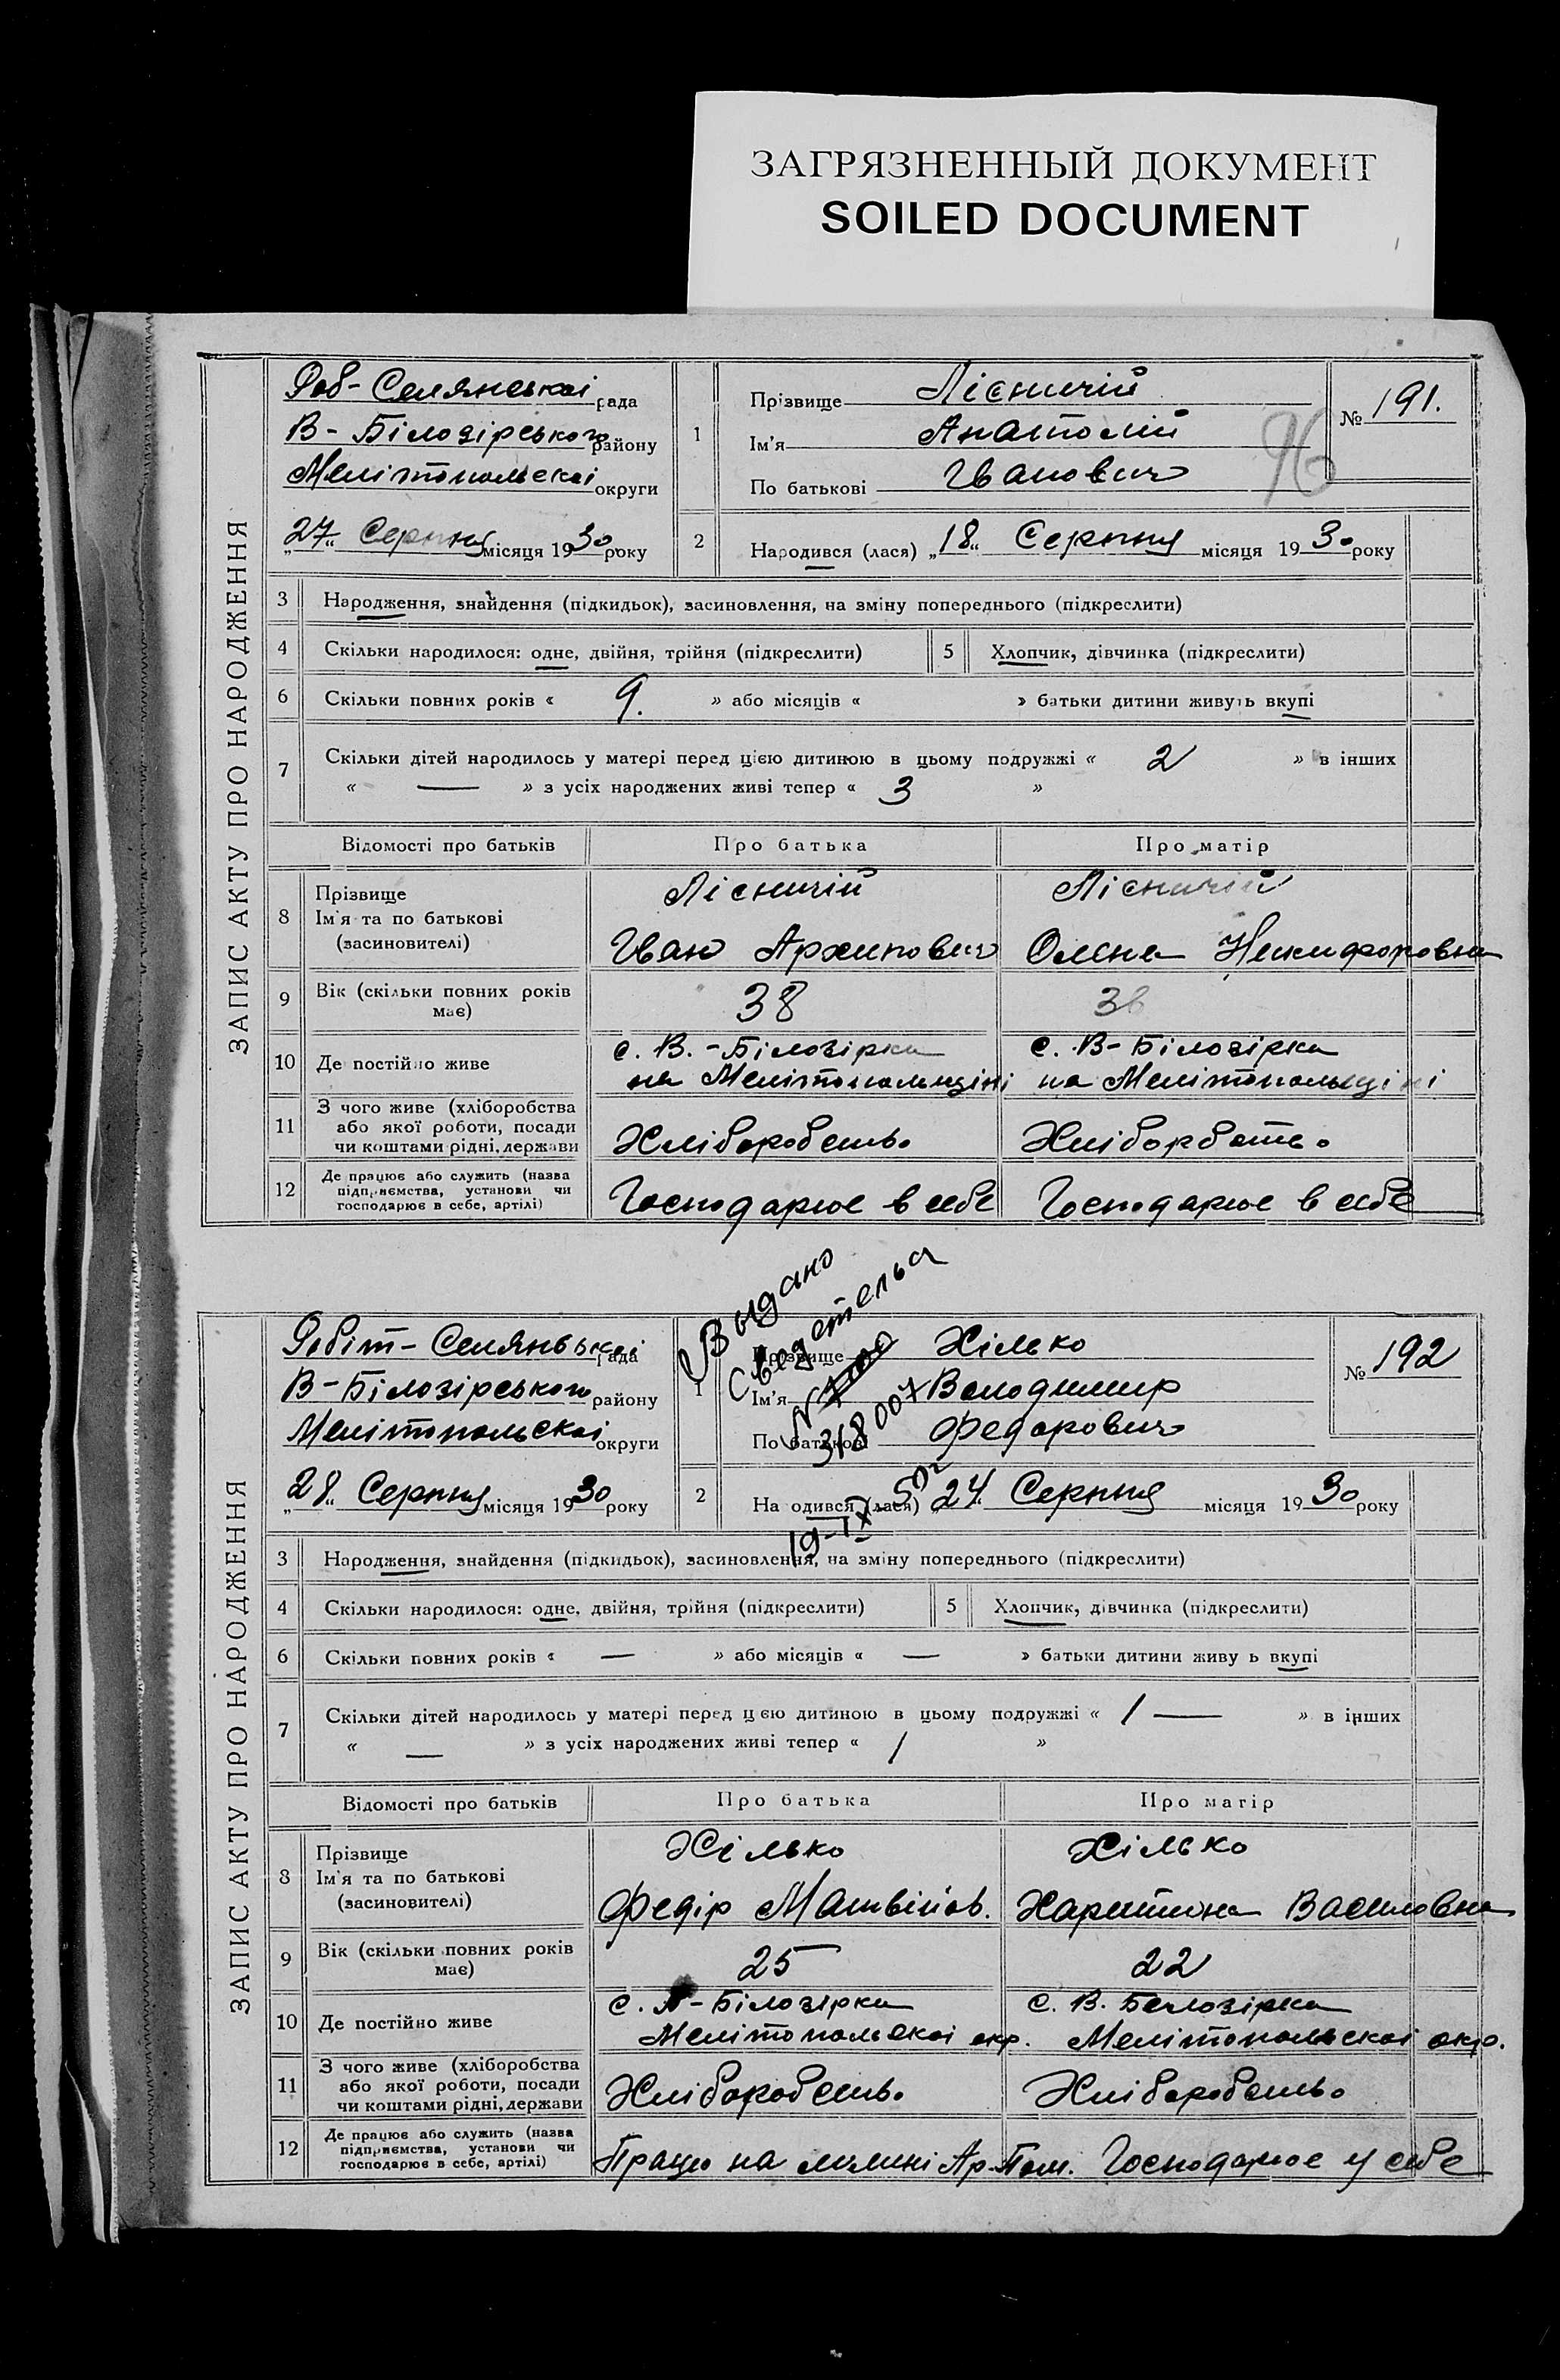 ЗАГРЯЗНЕННЫЙ ДОКУМЕНТ
SOILED DOCUMENT
ЗАПИС АКТУ ПРО НАРОДЖЕННЯ
Роб-Селянської рада
В-Білозірського району
Мелітопольскої округи
„27“ Серпня місяця 1930 року
1
Прізвище Лісничій
Ім'я Анатолій
По батькові Іванович
№ 191.
96
2
Народився (лася) „18“ Серпня місяця 1930 року
3 Народження, знайдення (підкидьок), засиновлення, на зміну попереднього (підкреслити)
4 Скільки народилося: одне, двійня, трійня (підкреслити)
5 Хлопчик, дівчинка (підкреслити)
6 Скільки повних років « 9. » або місяців « » батьки дитини живуть вкупі
7 Скільки дітей народилось у матері перед цією дитиною в цьому подружжі « 2 » в інших
« — » з усіх народжених живі тепер « 3 »
Відомості про батьків Про батька Про матір
8 Прізвище
Ім'я та по батькові
(засиновителі)
Лісничій
Іван Архипович
Лісничій
Олена Никифоровна
9 Вік (скільки повних років
має)
38
10 Де постійно живе
с. В.-Білозірка
на Мелітопольщіні
с. В-Білозірка
на Мелітопольщіні
11 З чого живе (хліборобства
або якої роботи, посади
чи коштами рідні, держави
Хліборобство
Хліборбство
12 Де працює або служить (назва
підприємства, установи чи
господарює в себе, артілі)
Господарює в себе
Господарює в себе
Выдано
Сведетельса
N
318007
19-IX 50г
ЗАПИС АКТУ ПРО НАРОДЖЕННЯ
Робіт-Селянської рада
В-Білозірського району
Мелітопольскої округи
„28“ Серпня місяця 1930 року
1
Прізвище Хілько
Ім'я Володимир
По батькові Федорович
№ 192
2
Народився (лася) „24“ Серпня місяця 1930 року
3 Народження, знайдення (підкидьок), засиновлення, на зміну попереднього (підкреслити)
4 Скільки народилося: одне, двійня, трійня (підкреслити)
5 Хлопчик, дівчинка (підкреслити)
6 Скільки повних років « — » або місяців « — » батьки дитини живу ь вкупі
7 Скільки дітей народилось у матері перед цією дитиною в цьому подружжі « 1 — » в інших
« — » з усіх народжених живі тепер « 1 »
Відомості про батьків Про батька Про матір
8 Прізвище
Ім'я та по батькові
(засиновителі)
Хілько
Федір Матвійов.
Хілько
Харитина Василовна
9 Вік (скільки повних років
має)
25
22
10 Де постійно живе
с. -Білозірка
Мелітопольскої окр.
с. В. Белозірка
Мелітопольскої окр.
11 З чого живе (хліборобства
або якої роботи, посади
чи коштами рідні, держави
Хліборобство
Хліборобство
12 Де працює або служить (назва
підприємства, установи чи
господарює в себе, артілі)
Працю на млині
Господарює у себе